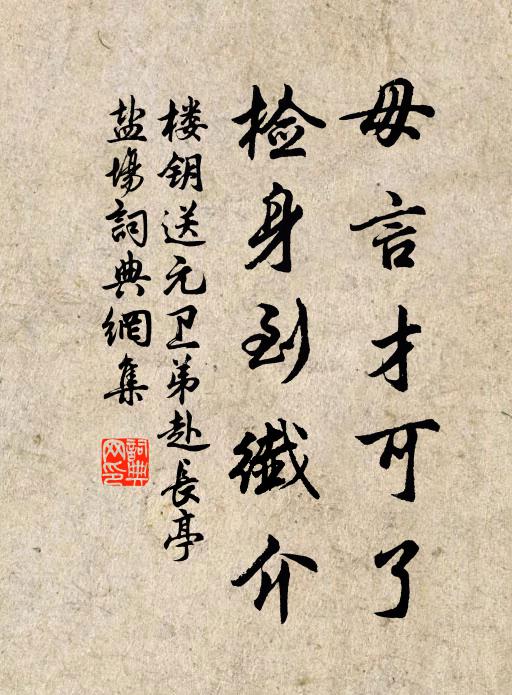 毋言才可了
检身到纖介
楼钥送元卫弟赴长亭
盐場詞典網集
詞典
网印